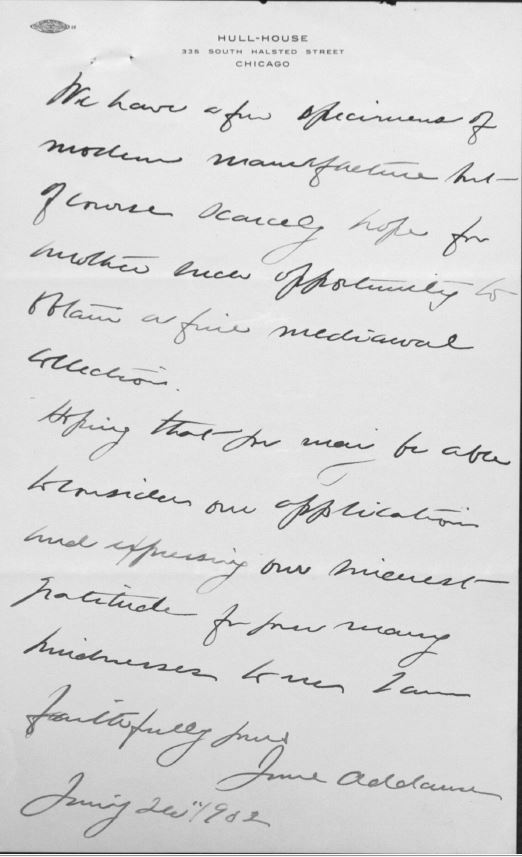 HULL-HOUSE
335 SOUTH HALSTED STREET
CHICAGO
We have a few specimens of
modern manufacture but
of course scarcely hope for
another such opportunity to
obtain a fine mediaeval
collection.
Hoping that you may be able
to consider our application
and expressing our sincerest
gratitude for your many
kindnesses to us I am
faithfully yours
Jane Addams
1902